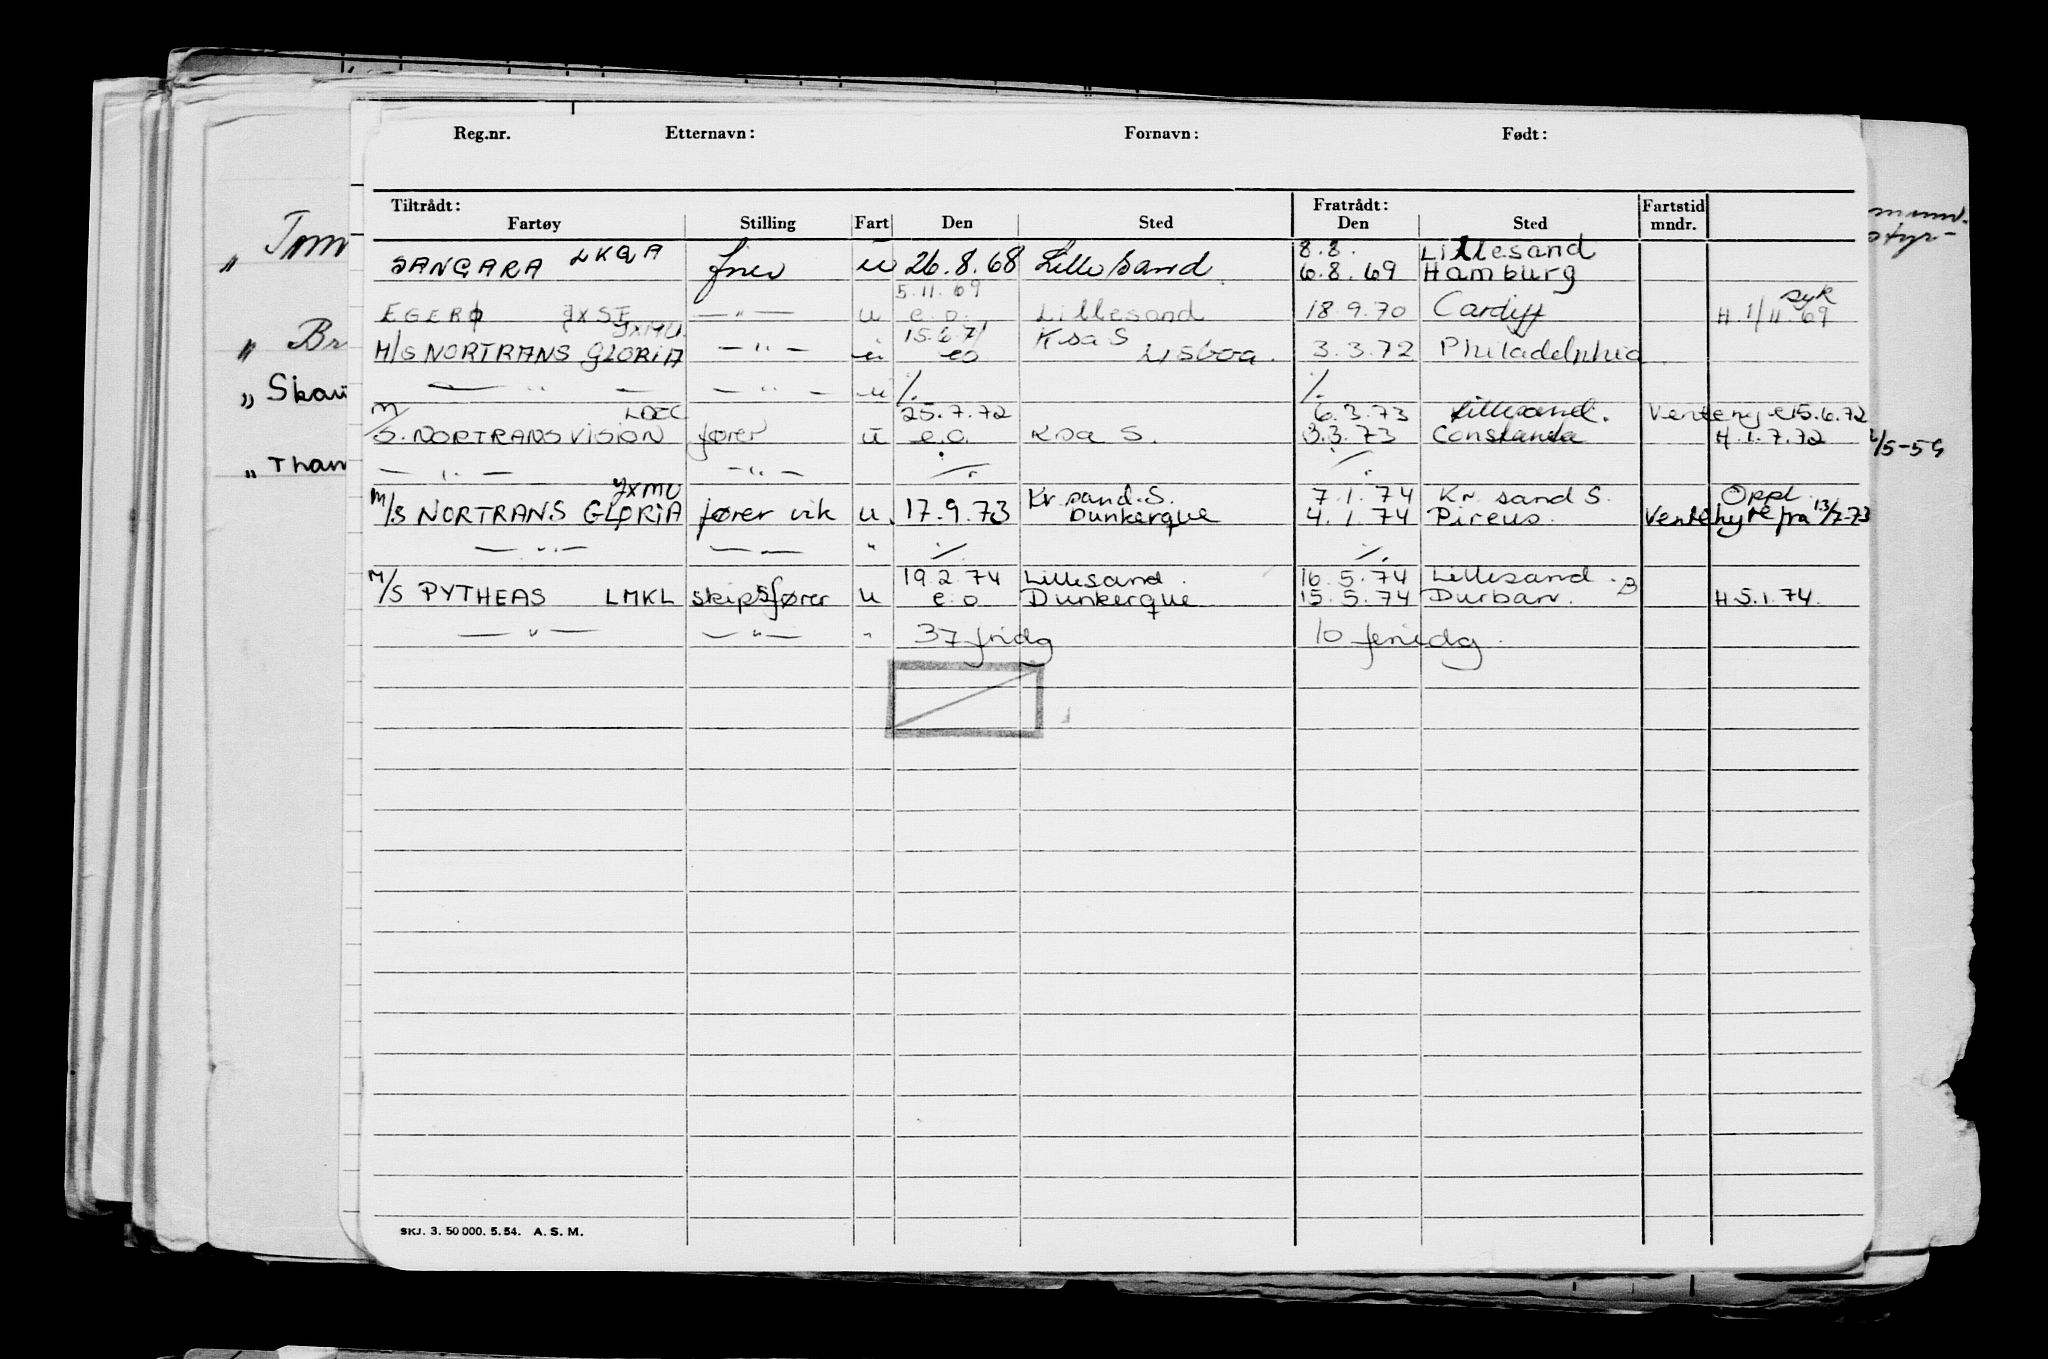 Reg.nr. Etternavn: Fornavn: Født:
Tiltrådt: Fratrådt: Fartstid
Fartøy Stilling Fart Den Sted Den Sted mndr.
LKQA 8.8. Lillesand
SANGARA u 26.8.68 Lillesand 6.8.69 Hamburg
5.11.69 syk
EGERØ JXSF — " — u e.o. Lillesand 18.9.70 Cardiff H. 1/11.69
JXMU 15.6.71 Ksa S
M/S NORTRANS GLORIA — " — u eo Lisboa. 3.3.72 Philadelphia
— " — — " — u ./. ./.
M/ LDEC 25.7.72 6.3.73 Lillesand. Ventehyre 15.6.72
S. NORTRANS VISION fører u e.o. Ksa S. 3.3.73 Constanta H.1.7.72
— " — — " — ./. ./.
JXMU Kr.sand.S. 7.1.74 Kr.sand S. Oppl.
M/S NORTRANS GLORIA fører vik u. 17.9.73 Dunkerque 4.1.74 Pireus. Ventehyre fra 13/7-73
— " — — " — " ./. ./.
19.2.74 Lillesand. 16.5.74 Lillesand.
M/S PYTHEAS LMKL skipsfører u e.o Dunkerque 15.5.74 Durban. B H 5.1.74.
— " — — " — " 37 fridg 10 feriedg.
SKJ. 3. 50 000. 5. 54. A. S. M.
" Br
" Skau
" Tham
/5-59